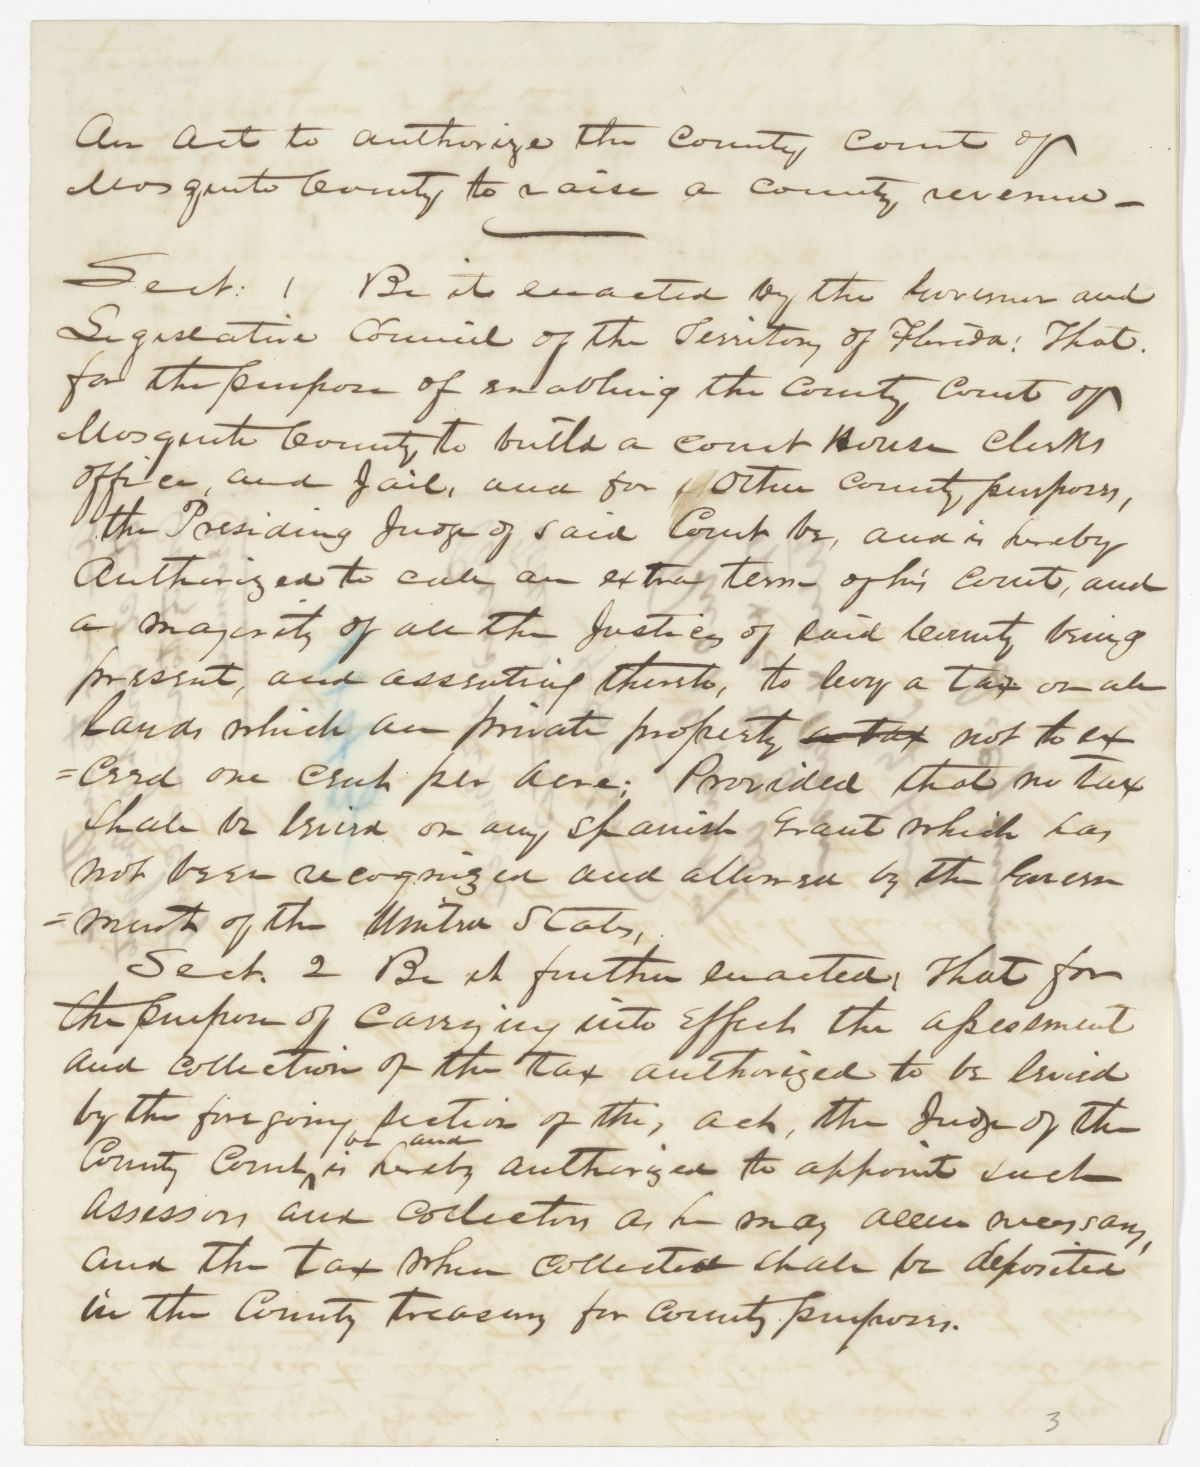 An Act to authorize the County Court of
Mosquito County to raise a county revenue –
Sect. 1 Be it enacted by the Governor and
Legislative Council of the Territory of Florida: That.
for the purpose of enabling the County Court of
Mosquito County to build a court House Clerks
office, and Jail, and for other county purposes,
the Presiding Judge of said Court be, and is hereby
Authorized to call an extra term of his court, and
a majority of all the Justices of said County being
present, and assenting thereto, to levy a tax on all
lands which are private property a tax not to ex
=ceed one cent per acre; Provided that no tax
shall be levied on any Spanish Grant which has
not been recognized and allowed by the Govern
=ment of the United States,
Sect. 2 Be it further enacted, That for
the purpose of carrying into effect the assessment
and collection of the tax authorized to be levied
by the foregoing section of this, act, the Judge of the
be and
County Court, is hereby authorized to appoint such
Assessors and collectors as he may deem necessary,
and the tax when collected shall be deposited
in the County treasury for County purposes.
3